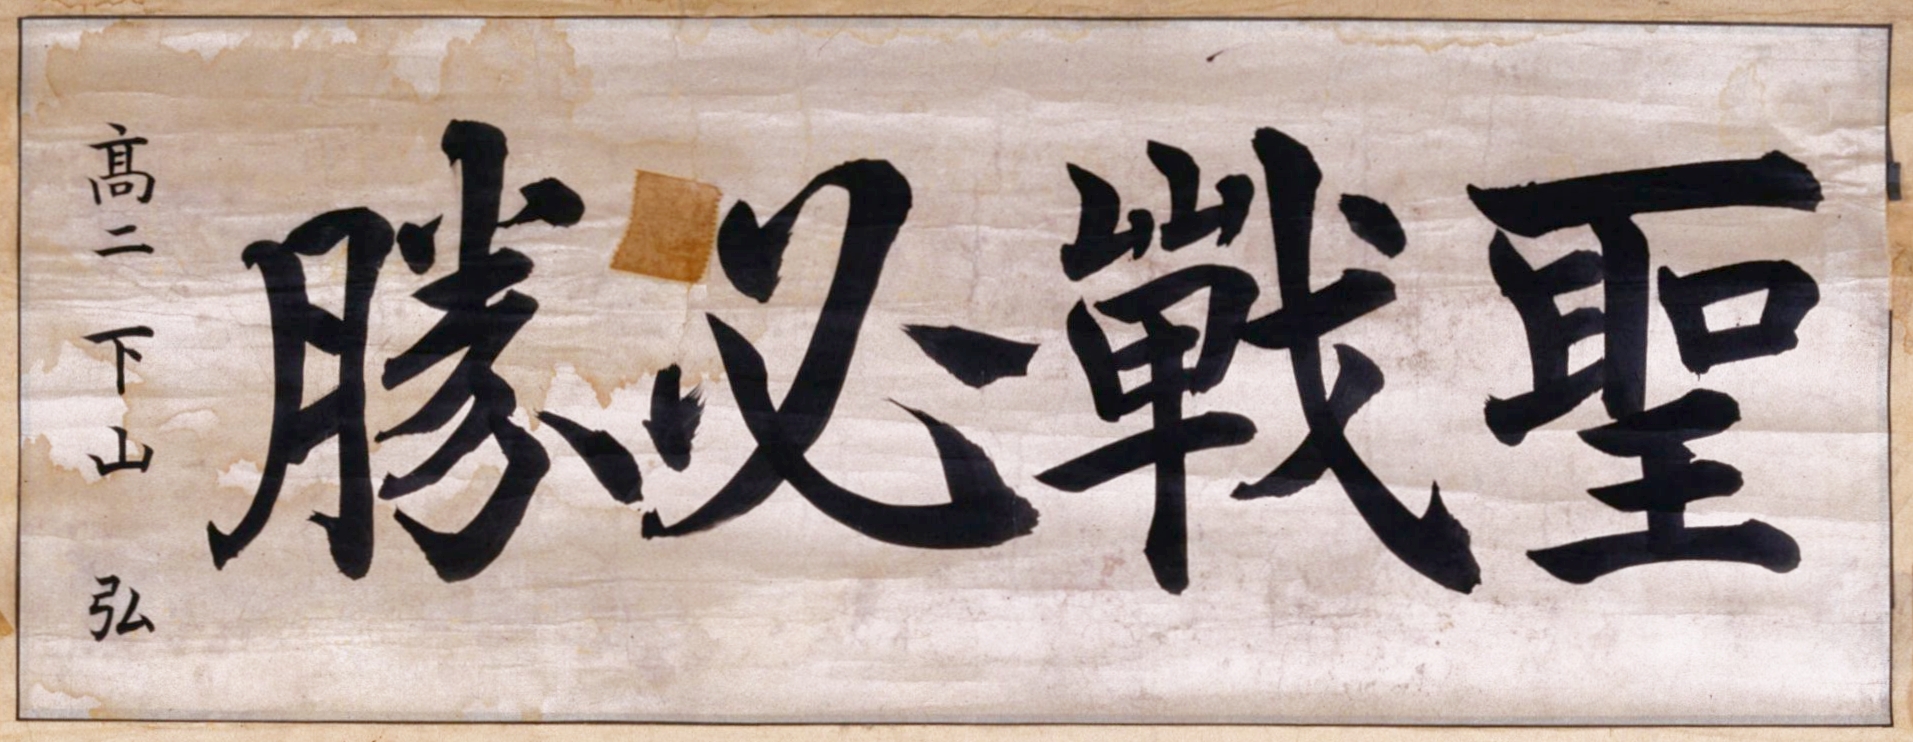 聖戰必勝
髙二 下山 弘